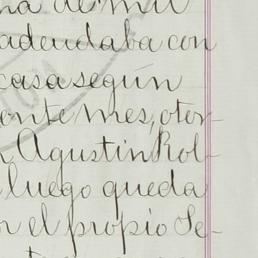 na de mil
adeudaba con
casa según
ente mes, otor-
n Agustin Rol-
luego queda
r el propio Se-